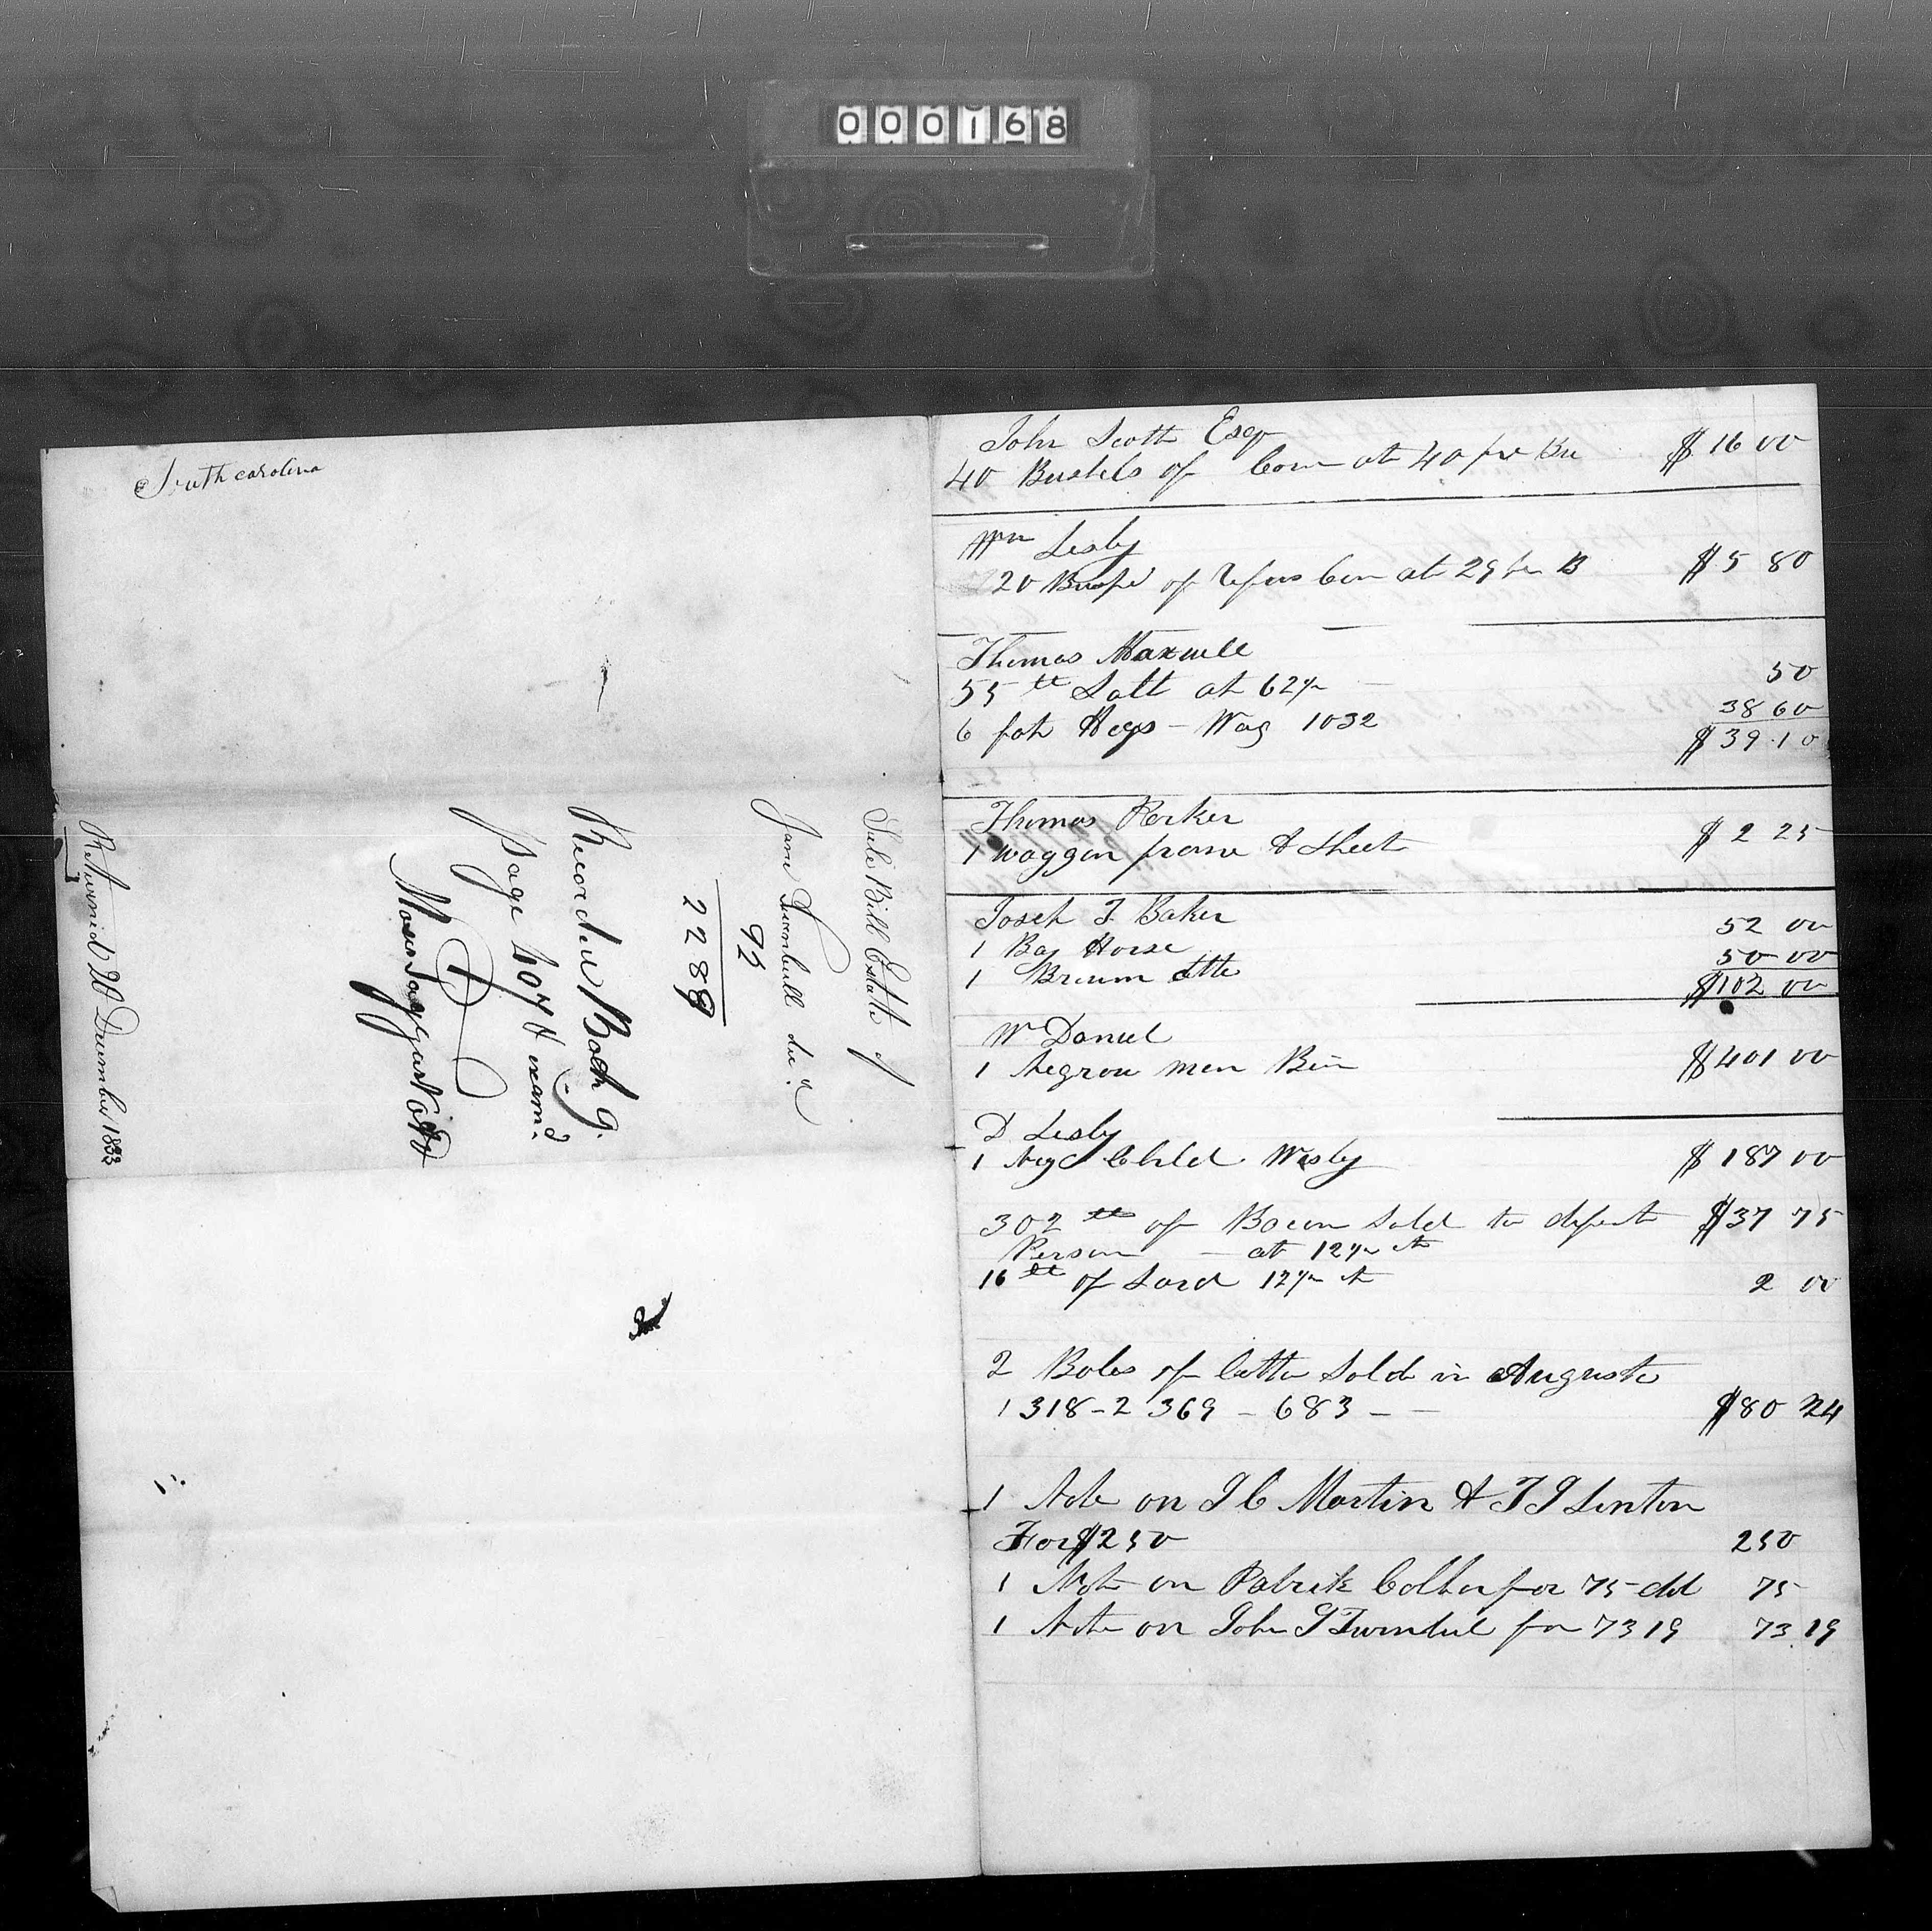 000168
South carolina
Sale Bill Estate of
Jane Turnbull decd.
92
2288
Recorded Book G.
page 407 & examd.
Moses Taggart O.A.D
Returnid 20 December 1833
John Scott Esqr
40 Bushels of Corn at 40 per Bu $ 16 00
Wm Lesly
20 Bushl of refus Corn at 29 per B $ 5 80
Thomas Maxwell
55 lb Salt at 62½ 50
6 fat Hogs - Wag 1032 38 60
$ 39.10
Thomas Parker
1 waggon frame & Sheet $ 2 25
Joseh F. Baker
1 Bay Horse 52 00
1 Broun ditto 50 00
$ 102 00
Wm Daniel
1 Negrou men Ben $ 401 00
D Lesly
1 Neg Child Wesly $ 187 00
302 lb of Bacon Sold to difent $ 37 75
Person - at 12½ ct
16 lb of Lard 12½ ct 2 00
2 Bales of Cotten Sold in Augusta
1 318 - 2 369 - 683 - - $ 80 24
1 Note on J C Martin & T J Linton
For $ 250 250
1 Note on Patrik Colhon for 75 dol 75
1 Note on John T Turnbul for 73 19 73.19